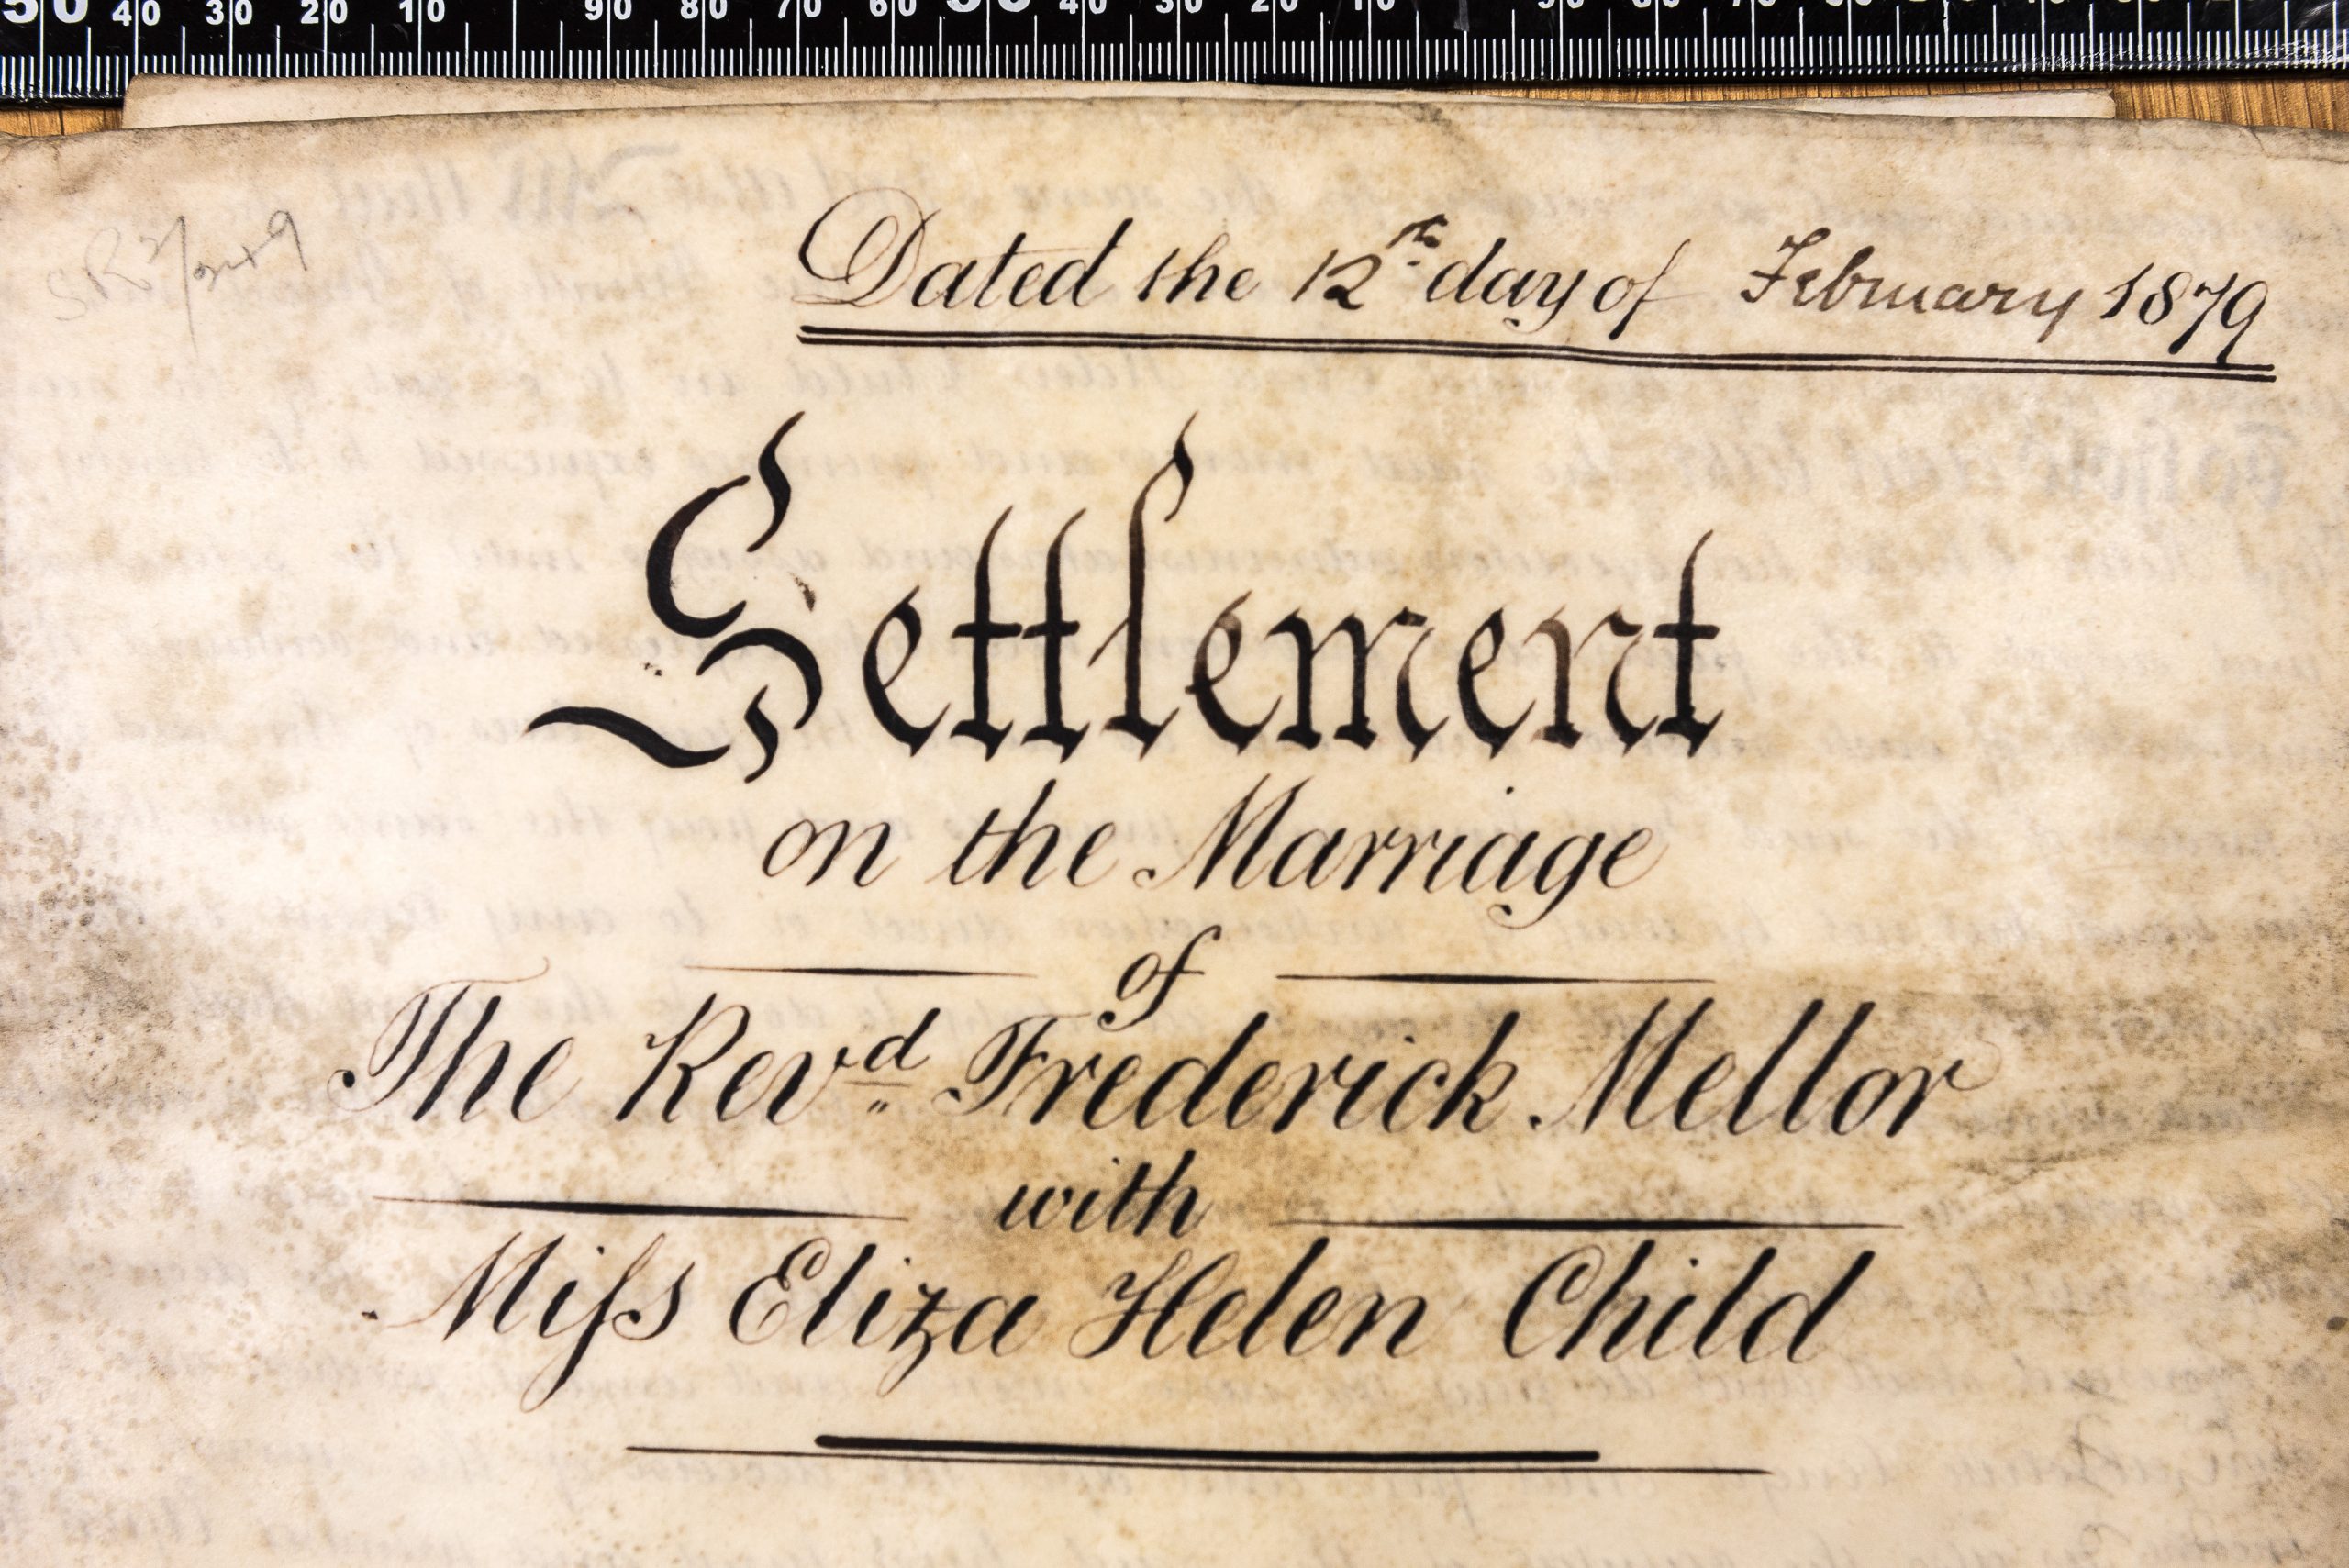 50 40 30 20 10 90 80 70 60 50 40 30 20 10 90
Dated the 12th day of February 1879
Settlement
on the Marriage
of
The Revd Frederick Mellor
with
Miſs Eliza Helen Child